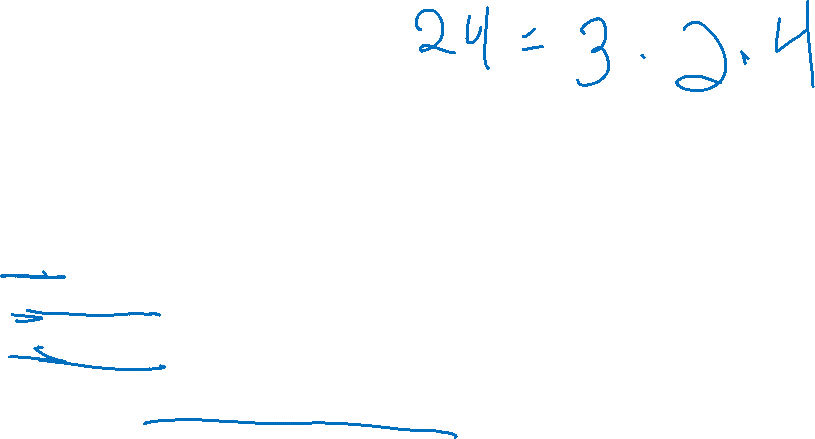 24 = 3 · 2 · 4